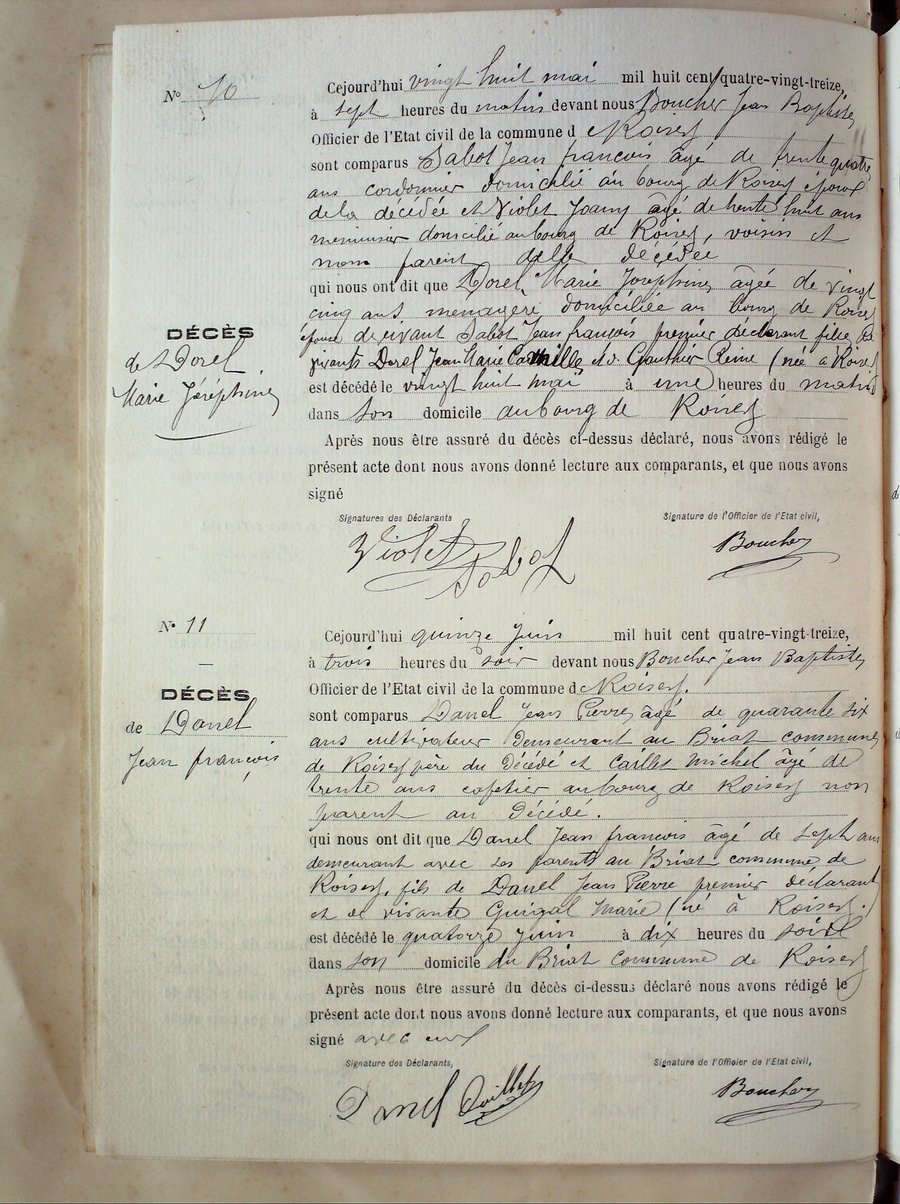 N° 10
Cejourd'hui vingt huit mai mil huit cent quatre-vingt-treize,
à sept heures du matin devant nous Boucher Jean Baptiste
Officier de l'Etat civil de la commune d e Roisey
sont comparus Sabot Jean françois âgé de trente quatre
ans cordonnier domicilié au bourg de Roisey époux
de la décédée et Violet Joany âgé de trente huit ans
menuisier domicilié au bourg de Roisey, voisin et
non parent de la décédée
qui nous ont dit que Dorel Marie Joséphine âgée de vingt
cinq ans menagère domiciliée au bourg de Roisey
épouse de vivant Sabot Jean françois premier déclarant fille des
vivants Dorel Jean Marie Camille et de Gauthier Reine (née à Roisey
est décédé le vingt huit mai à une heures du matin
dans son domicile au bourg de Roisey
DÉCÈS
de Dorel
Marie Joséphine
Après nous être assuré du décès ci-dessus déclaré, nous avons rédigé le
présent acte dont nous avons donné lecture aux comparants, et que nous avons
signé
Signatures des Déclarants
Signature de l'Officier de l'Etat civil,
Violet Sabot
Boucher
N° 11
Cejourd'hui quinze Juin mil huit cent quatre-vingt-treize,
à trois heures du soir devant nous Boucher Jean Baptiste
Officier de l'Etat civil de la commune d e Roisey.
DÉCÈS
de Danel
Jean françois
sont comparus Danel Jean Pierre âgé de quarante six
ans cultivateur demeurant au Briat commune
de Roisey père du décédé et Caillet Michel âgé de
trente ans cafetier au bourg de Roisey non
parent au décédé.
qui nous ont dit que Danel Jean francois âgé de sept ans
demeurant avec ses parents au Briat commune de
Roisey, fils de Danel Jean Pierre premier déclarant
et de vivante Guigal Marie (né à Roisey.)
est décédé le quatorze Juin à dix heures du soir
dans son domicile du Briat commune de Roisey
Après nous être assuré du décès ci-dessus déclaré nous avons rédigé le
présent acte dont nous avons donné lecture aux comparants, et que nous avons
signé avec eux
Signature des Déclarants,
Signature de l'Officier de l'Etat civil,
Danel Caillet
Boucher